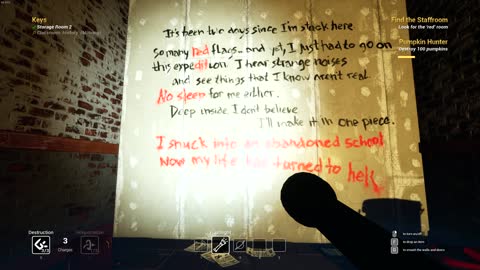 Keys
Storage Room 2
Find the Staffroom
Look for the 'red' room
Pumpkin Hunter
Destroy 100 pumpkins
It's been two days since I'm stuck here.
So many red flags... and yet, I just had to go on
this expedition. I hear strange noises
and see things that I know aren't real.
No sleep for me either.
Deep inside I don't believe
I'll make it in one piece.
I snuck into an abandoned school
Now my life has turned to hell
Destruction
3
Charges
to drop an item